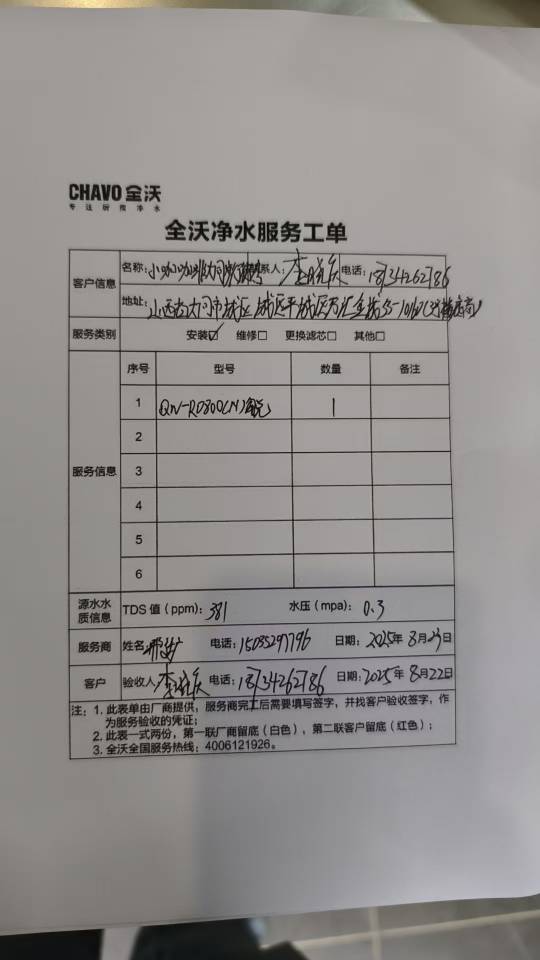 CHAVO 全沃
专注所须净水
全沃净水服务工单
客户信息
名称: 小咖咖啡大同 联系人: 李晓庆 电话: 18734262786
地址: 山西省大同市城区 城区平城区万汇金街S5-10
服务类别 安装☑ 维修□ 更换滤芯□ 其他□
服务信息
序号 型号 数量 备注
1 QW-RO800(N) 1
2
3
4
5
6
源水水质信息 TDS 值 (ppm): 381 水压 (mpa): 0.3
服务商 姓名: 电话: 15035297796 日期: 2025年 8月 23日
客户 验收人: 李晓庆 电话: 18734262786 日期: 2025年 8月 22日
注: 1. 此表单由厂商提供, 服务商完工后需要填写签字, 并找客户验收签字, 作
为服务验收的凭证;
2. 此表一式两份, 第一联厂商留底 (白色), 第二联客户留底 (红色);
3. 全沃全国服务热线: 4006121926。